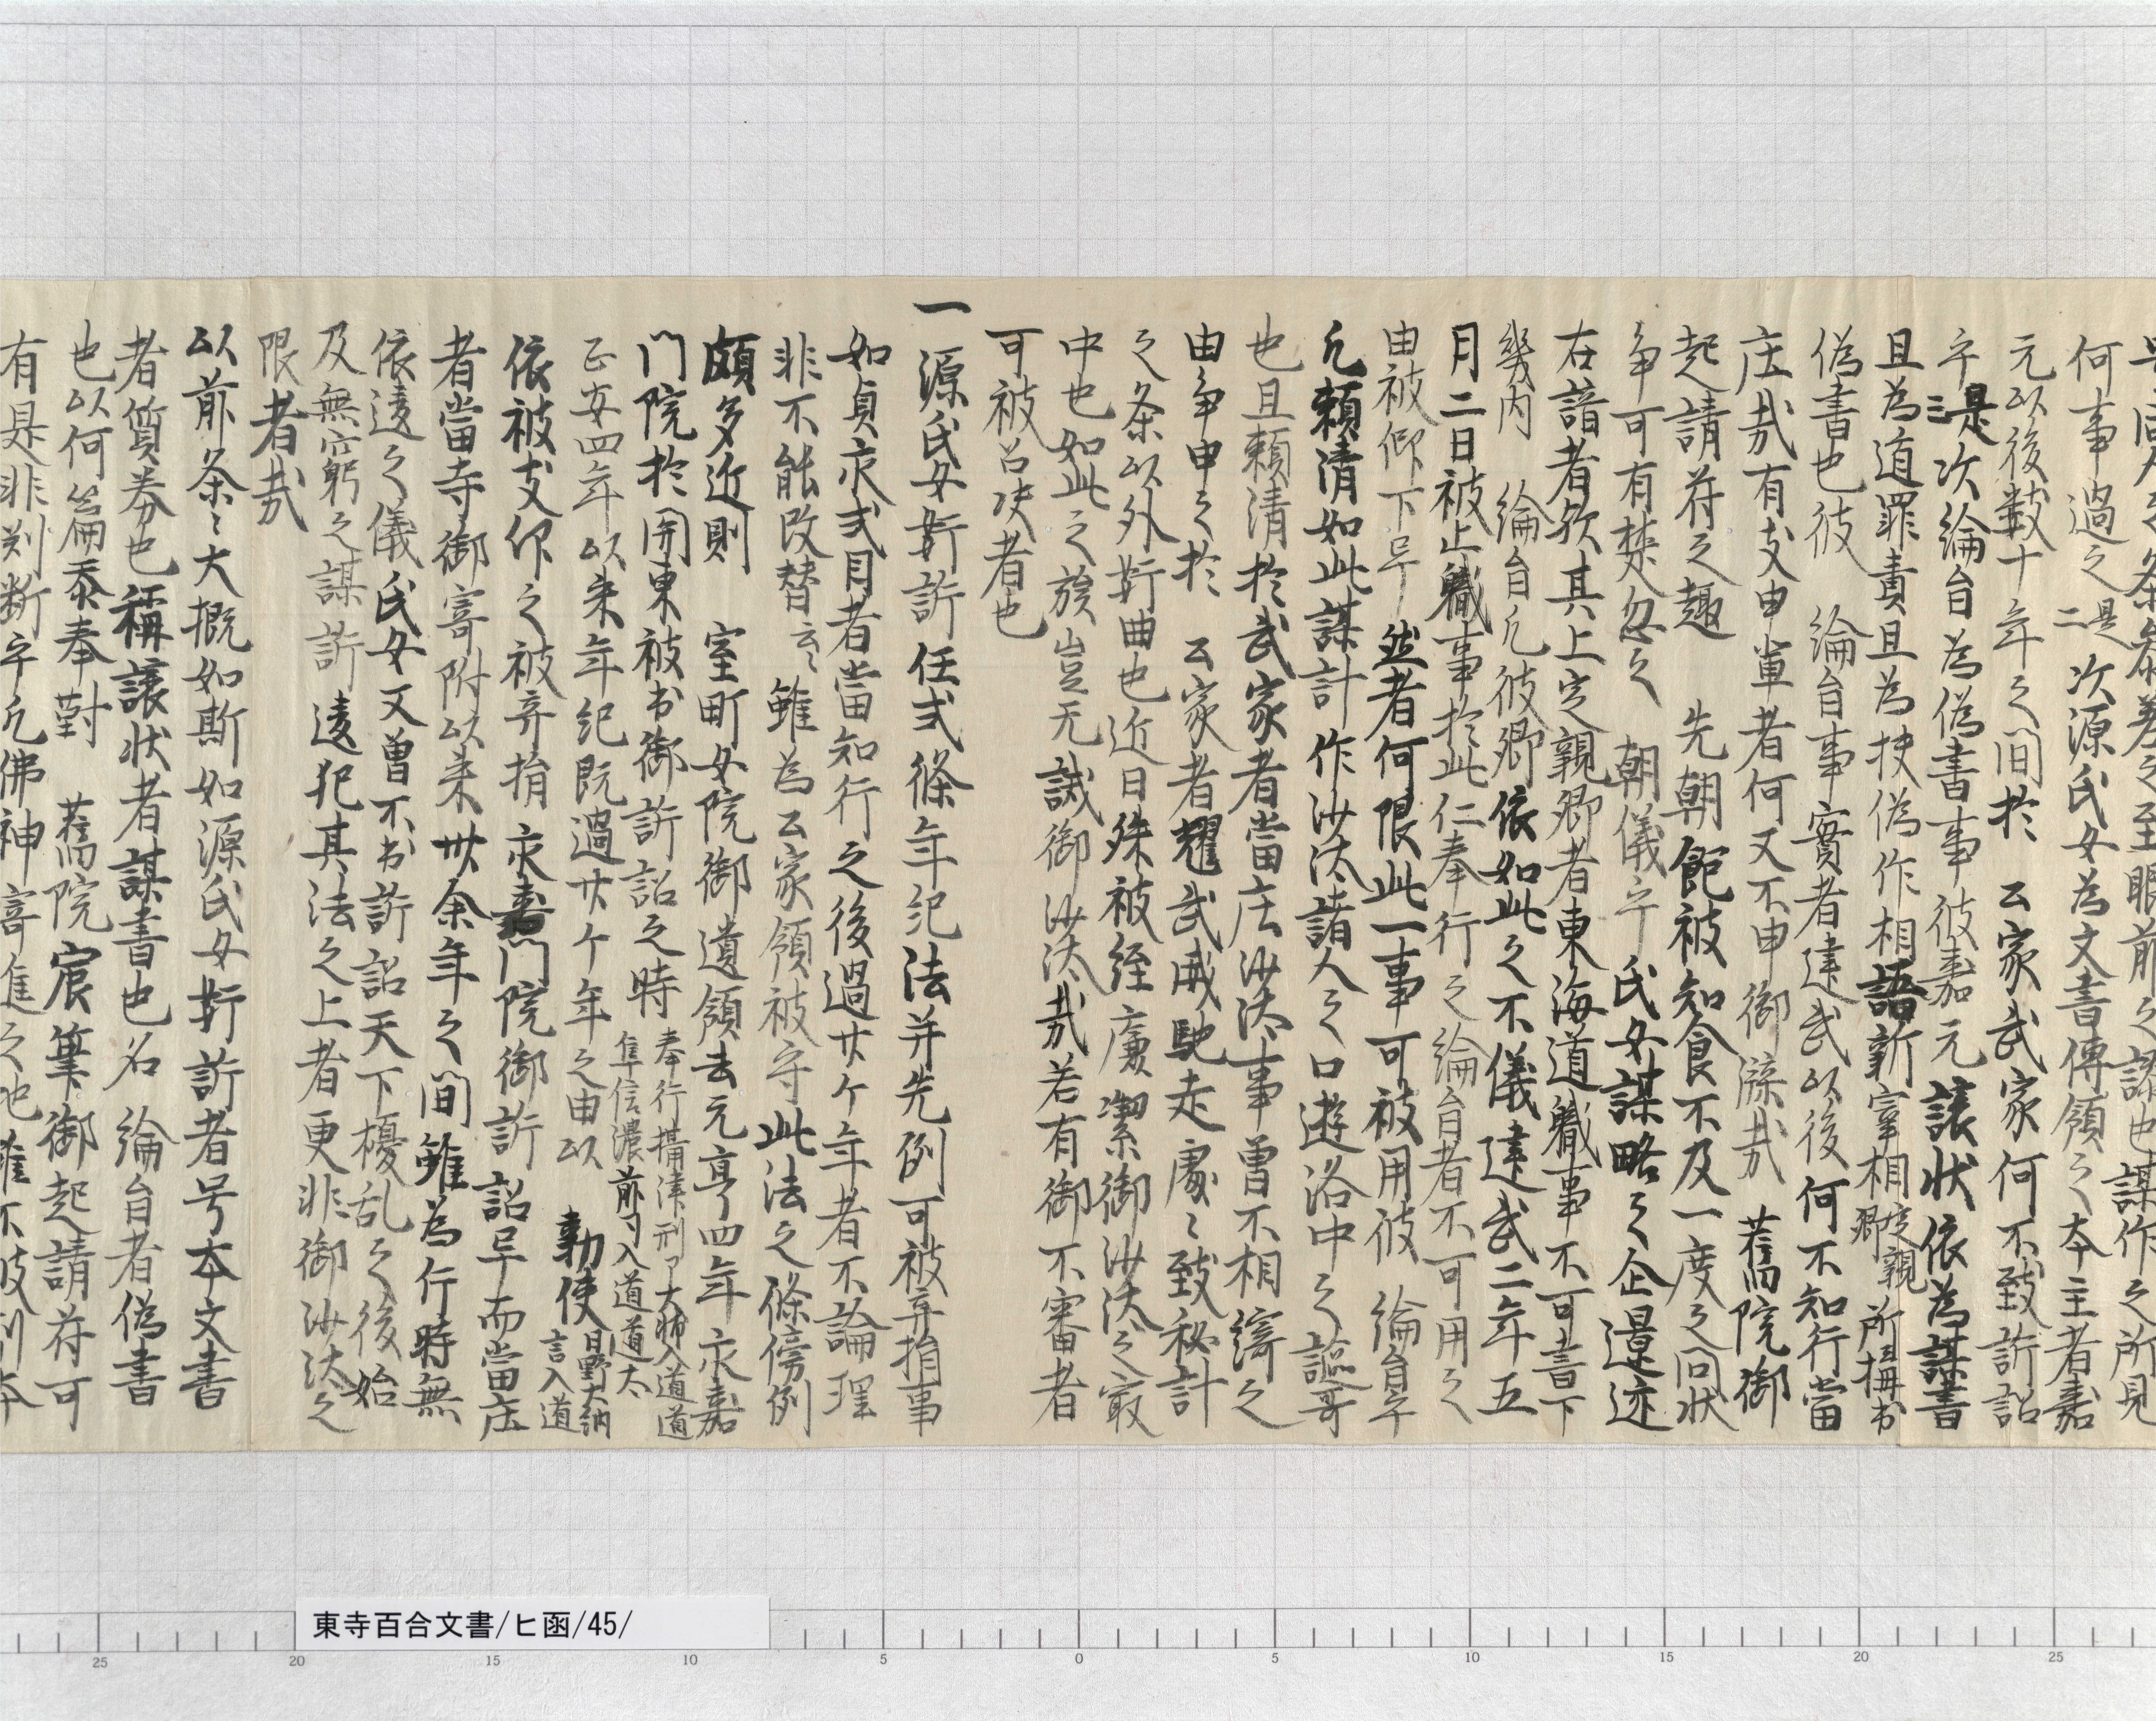 何事過之 是二 次源氏女為文書傳領之本主者嘉
元以後数十年之間於 公家武家何不致訴詔
乎 是三 次綸旨為偽書事彼嘉元譲状依為謀書
且為遁罪責且為扶偽作相語新宰相 定親卿 所掠書
偽書也彼 綸旨事實者建武以後何不知行當
庄哉有支申輩者何又不申御牒哉 舊院御
起請符之趣 先朝飽被知食不及一度之問状
争可有楚忽之 朝儀乎氏女謀略之企邊迹
在諳者欤其上定親卿者東海道軄事不可書下
畿内 綸旨凡彼卿依如此之不儀建武二年五
月二日被止軄事於此仁奉行之綸旨者不可用之
由被仰下早然者何限此一事可被用彼 綸旨乎
凡頼清如此謀計作沙汰諸人之口遊洛中之謳哥
也且頼清於武家者當庄沙汰事曾不相綺之
由争申之於 公家者耀武威馳走處々致秘計
之条以外奸曲也近日殊被経廉潔御沙汰之最
中也如此之族豈无誡御沙汰哉若有御不審者
可被召决者也
一源氏女奸訴任式條年紀法并先例可被弃捐事
如貞永式目者當知行之後過廿ケ年者不論理
非不能改替云々雖為公家領被守此法之條傍例
頗多近則 室町女院御遺領去元亨四年永嘉
門院於関東被出御訴詔之時 奉行攝津刑了大輔入道道隼信濃前司入道道太
正安四年以来年紀既過廿ケ年之由以 勅使 日野大納言入道
依被支仰之被弃捐 永嘉門院御訴詔早而當庄
者當寺御寄附以来廿余年之間雖為行時無
依違之儀氏女又曽不出訴詔天下擾乱之後始
及無窮之謀訴違犯其法之上者更非御沙汰之
限者哉
以前条々大概如斯如源氏女奸訴者号本文書
者質券也稱譲状者謀書也名綸旨者偽書
也以何篇忝奉對 舊院宸筆御起請符可
有是非判断乎凡佛神寄進之地
東寺百合文書/ヒ函/45/
25 20 15 10 5 0 5 10 15 20 25